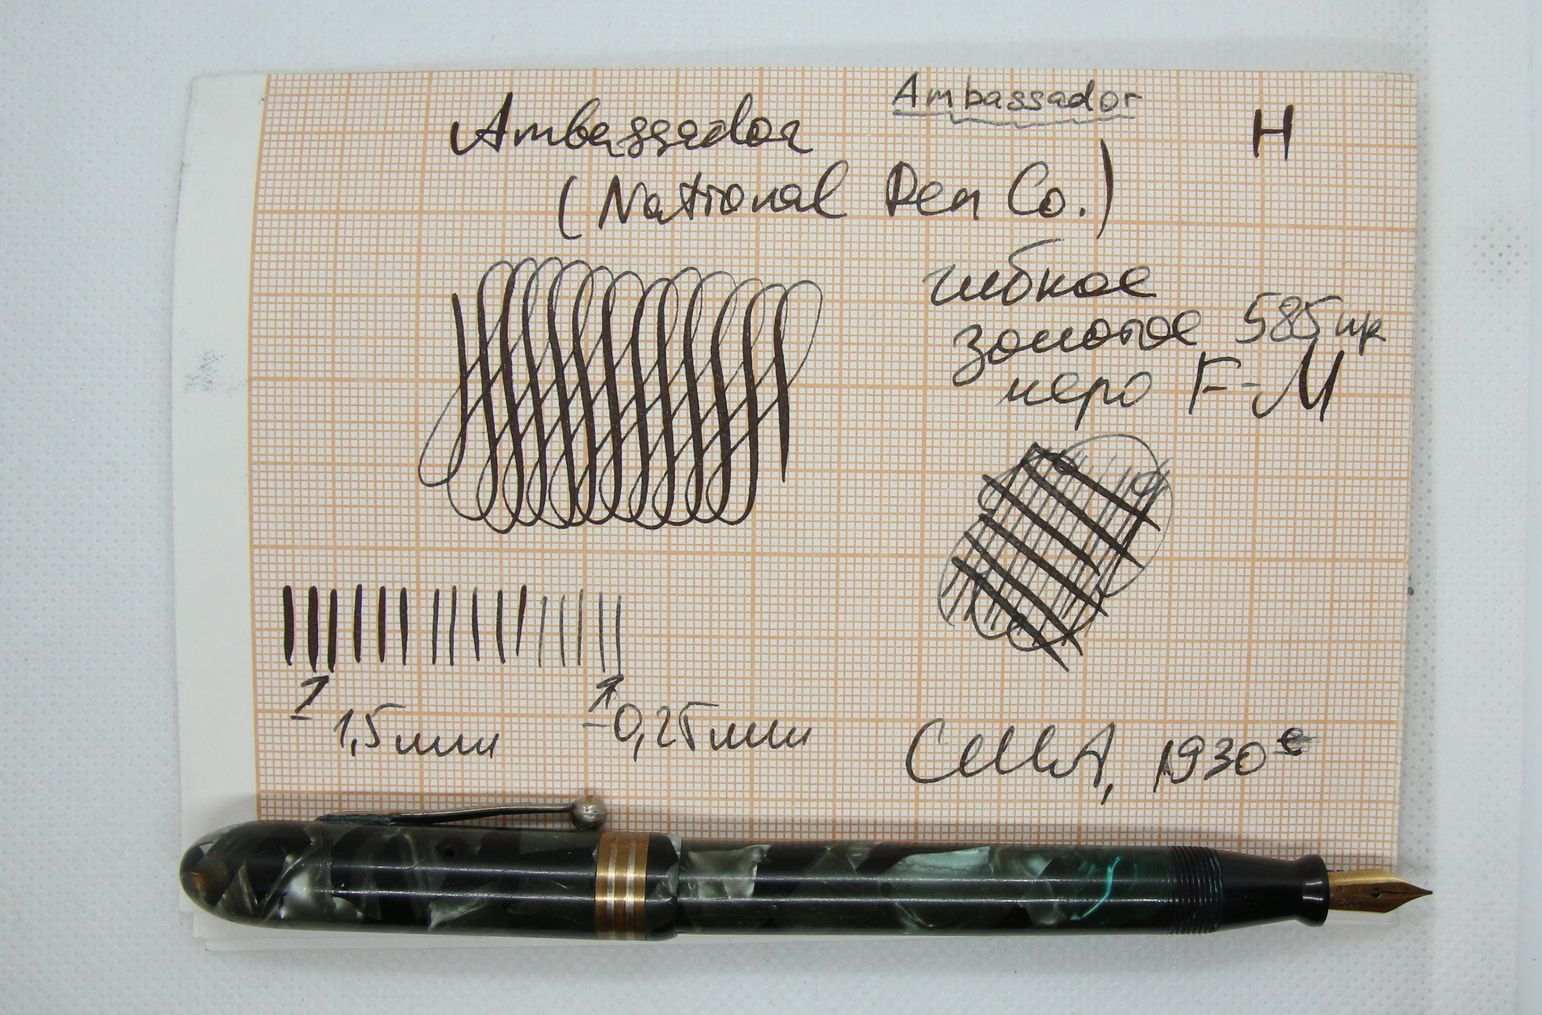 Ambassador
Ambassador
H
(National Pen Co.)
гибкое
золотое 585 пр
перо F-M
1,5 мм
0,25 мм
США, 1930е